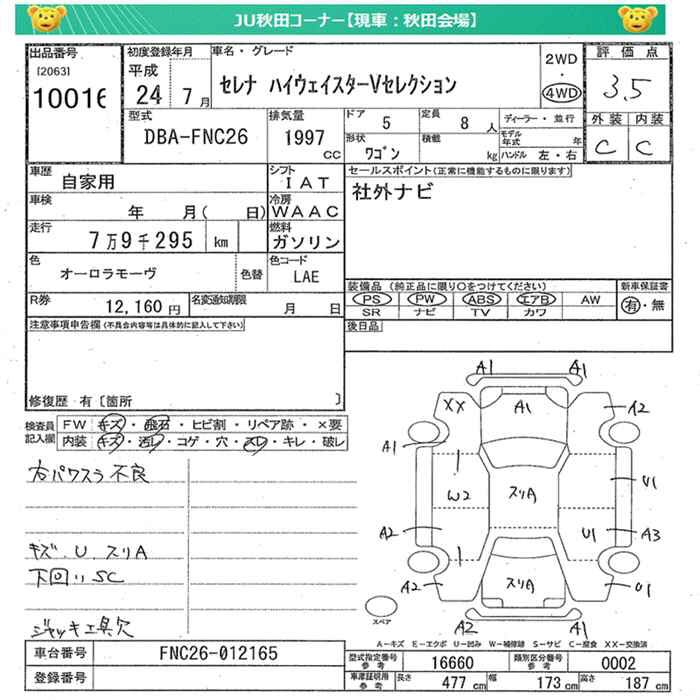 JU秋田コーナー【現車：秋田会場】
出品番号 [2063] 10016
初度登録年月 平成 24 7月
車名・グレード セレナ ハイウェイスターVセレクション
2WD・4WD
評価点 3.5
型式 DBA-FNC26
排気量 1997 CC
ドア 5
定員 8 人
ディーラー・並行
形状 ワゴン
積載 kg
モデル年式 年
ハンドル 左・右
外装 C
内装 C
車歴 自家用
シフト IAT
セールスポイント(正常に機能するものに限ります)
社外ナビ
車検 年 月( 日)
冷房 WAAC
走行 7万9千295 km
燃料 ガソリン
色 オーロラモーヴ 色替
色コード LAE
装備品 (純正品に限り○をつけてください)
PS PW ABS エアB AW
SR ナビ TV カワ
新車保証書 有・無
R券 12,160円
名変通知期限 月 日
後日品
注意事項申告欄(不具合内容等は具体的に記入して下さい)
修復歴 有〔箇所 〕
検査員記入欄
FW キズ・飛石・ヒビ割・リペア跡・×要
内装 キズ・汚レ・コゲ・穴・スレ・キレ・破レ
右パワスラ不良
キズ．U．スリA
下回リSC
ジャッキ工具欠
A1 A1
XX A1 A2
A1
W2 スリA U1
A2 U1 A3
A2 スリA U1
A2 A1
スペア
A－キズ E－エクボ U－凹み W－補修跡 S－サビ C－腐食 XX－交換済
車台番号 FNC26-012165
登録番号
型式指定番号 参考 16660
類別区分番号 参考 0002
車庫証明用 参考 長さ 477 cm 幅 173 cm 高さ 187 cm